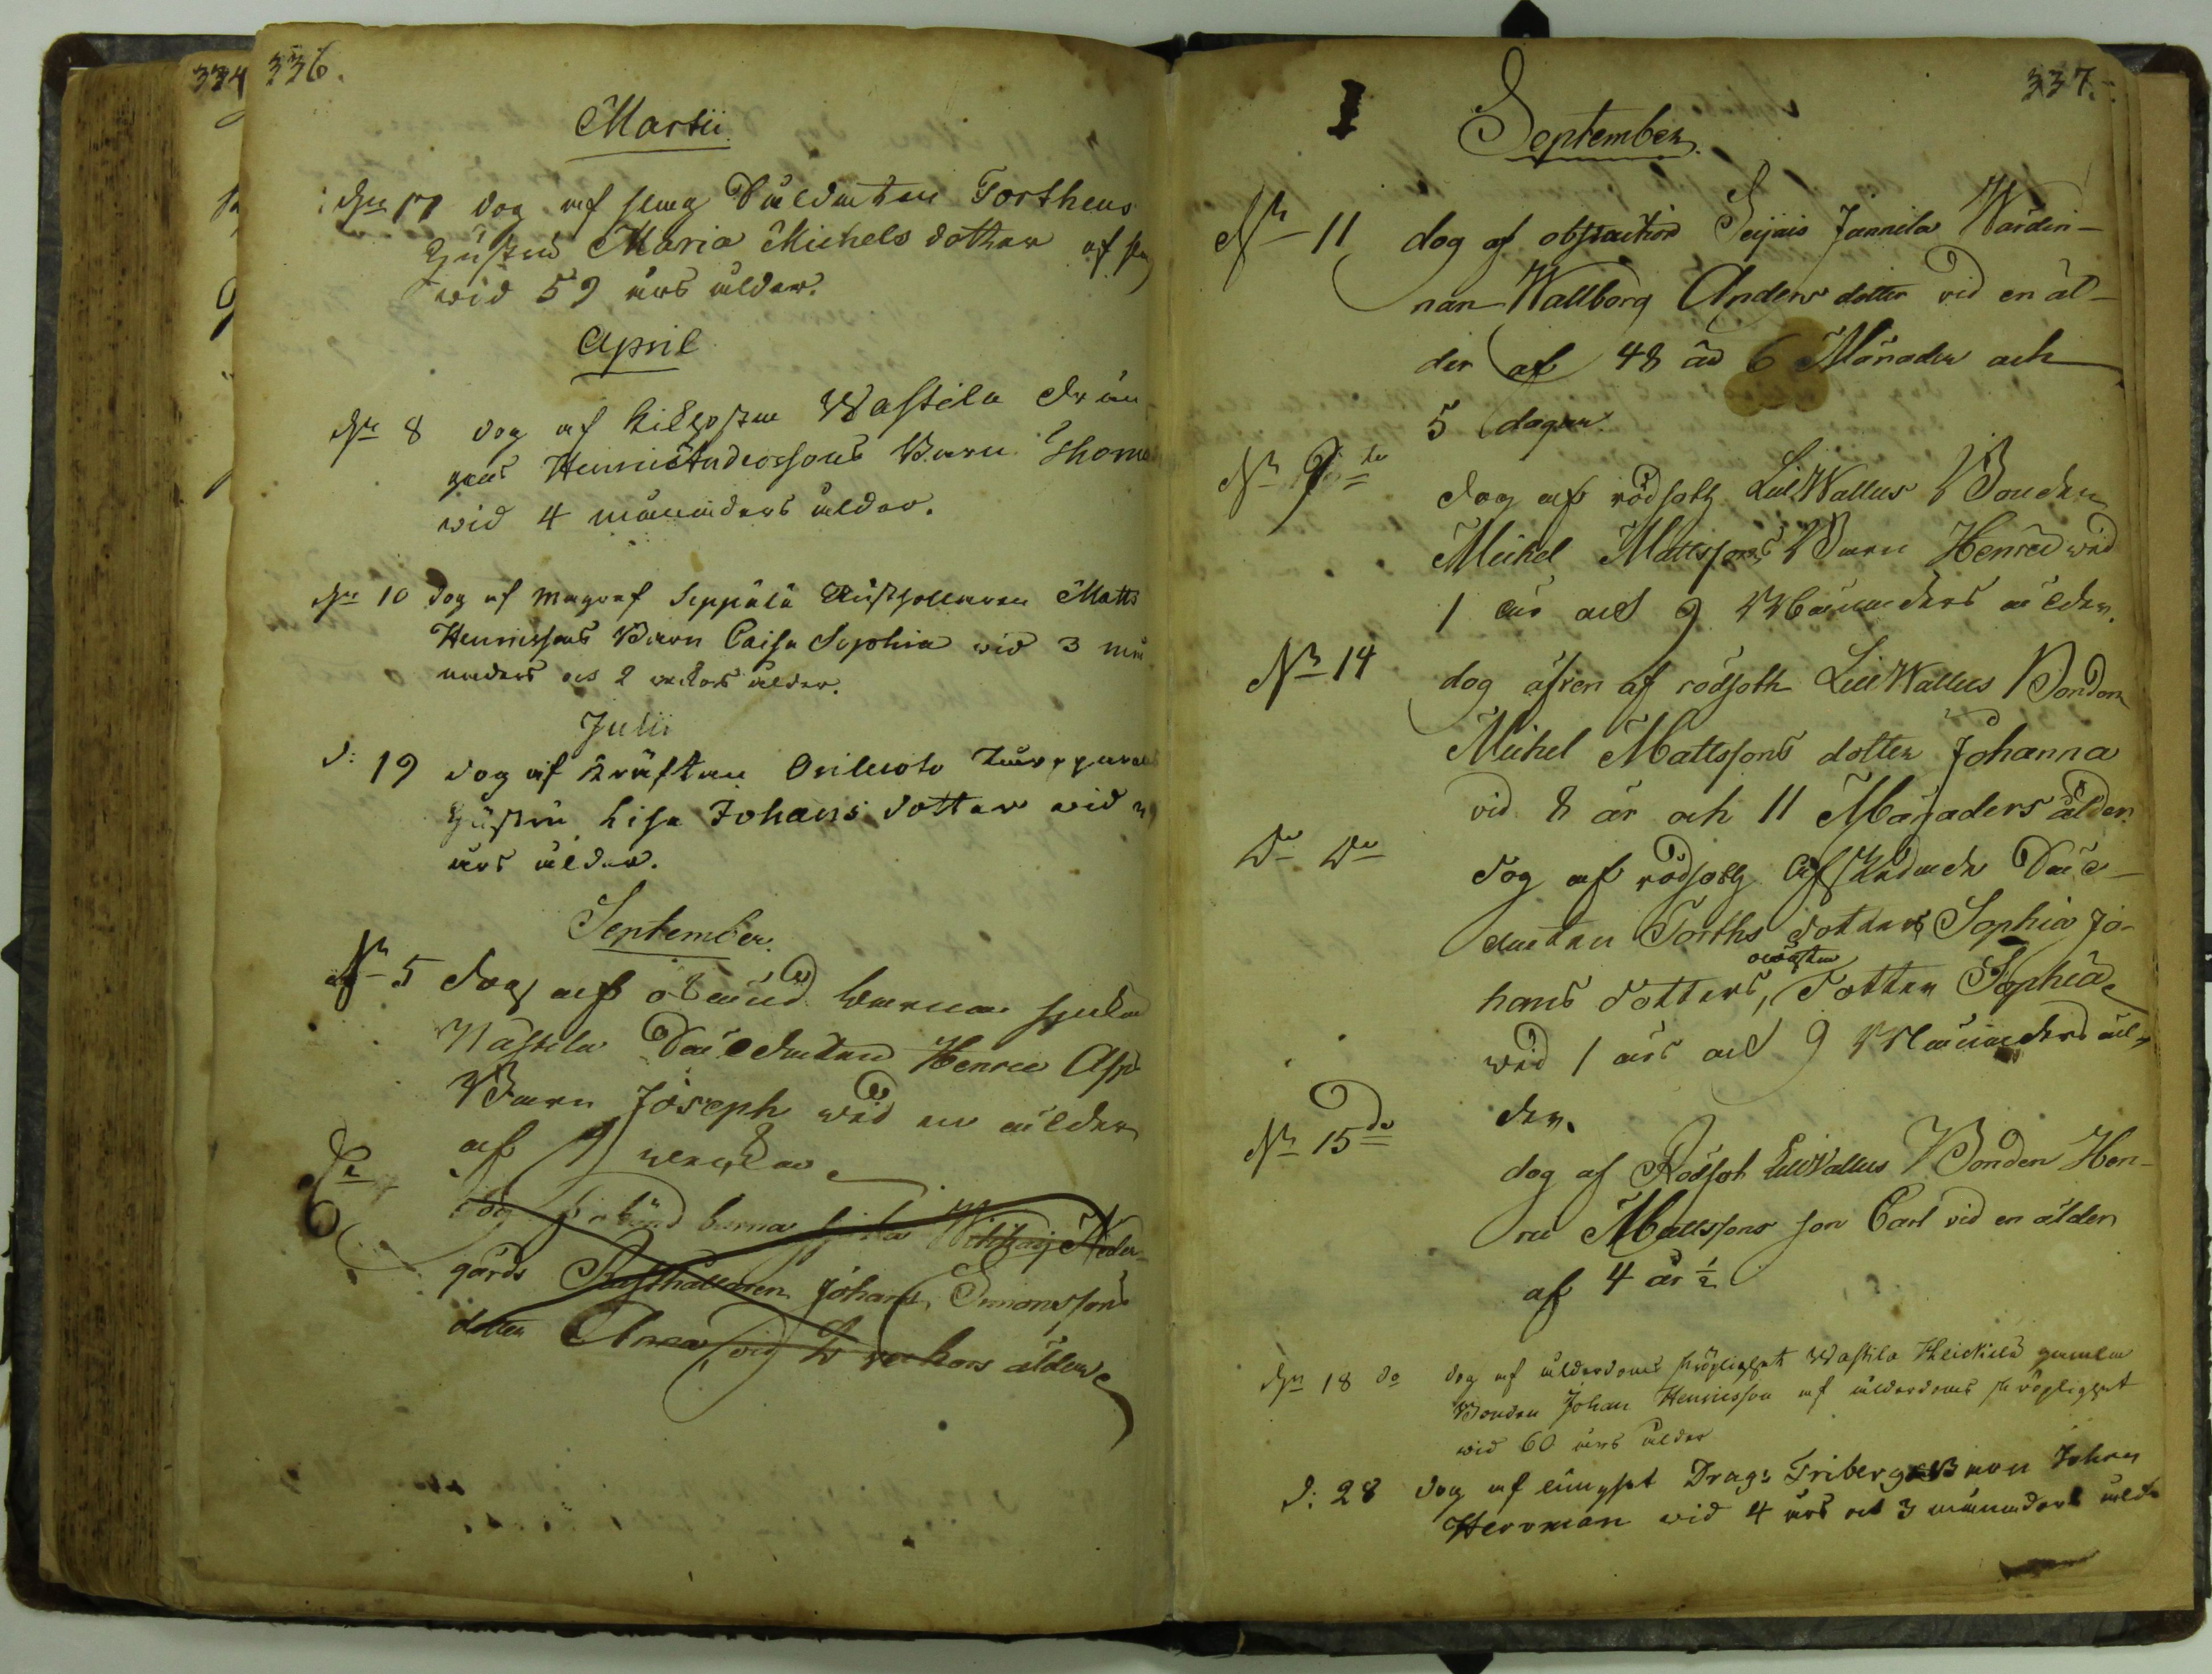 334
336.
Martii.
den 17 dog af slag Såldaten Forthens
Hustru Maria Michels dotter af slag
wid 59 års ålder.
April
den 8 dog af kikhostan Wastila drän-
gens Henric Anderssons Barn Thomas
wid 4 månaders ålder.
den 10 dog af magref Seppälä Rusthollaren Matts
Henricssons Barn Caisa Sophia wid 3 må-
naders och 2 veckors ålder.
Julii
d: 19 dog af kräftan Orilucto Torpparens
Hustru Lisa Johans dotter wid
års ålder.
September.
Nr 5 dog af okänd barna sjuka
Wastila Såldaten Henric Asps
Barn Joseph wid en ålder
af 9 weckor
6 dog okänd barna sjuka Neder-
gårds Rusthållaren Johans Simonssons
dotter Anna, vid veckors ålder
337.
September.
Nr 11 dog af obstruction Seijais Jannila Wärdin-
nan Wallborg Anders dotter vid en ål-
der af 48 år 6 Månader och
5 dagar.
Nr 9 de dog af rödsoth LillWallus Bonden
Michel Mattssons Barn Henric wid
1 års och 9 Månaders ålder.
Nr 14 dog äfven af rödsoth LillWallus Bonden
Michel Mattssons dotter Johanna
vid 8 år och 11 Månaders ålder
Do Do dog af rödsoth Afskedade Sål-
daten Forths dotters Sophia Jo-
hans dotters, oäkta dotter Sophia
wid 1 års och 9 Månaders ål-
der.
Nr 15 do dog af Rödsot LillWallus Bonden Hen-
ric Mattssons son Carl vid en ålder
af 4 år ½
den 18 do dog af ålderdoms bräcklighet Wastila Heickilä gamla
Bonden Johan Henricsson af ålderdoms bräcklighet
wid 60 års ålder
d: 28 dog af lungsot Drag: Fribergs Barn Johan
Herrman wid 4 års och 3 månaders ålder